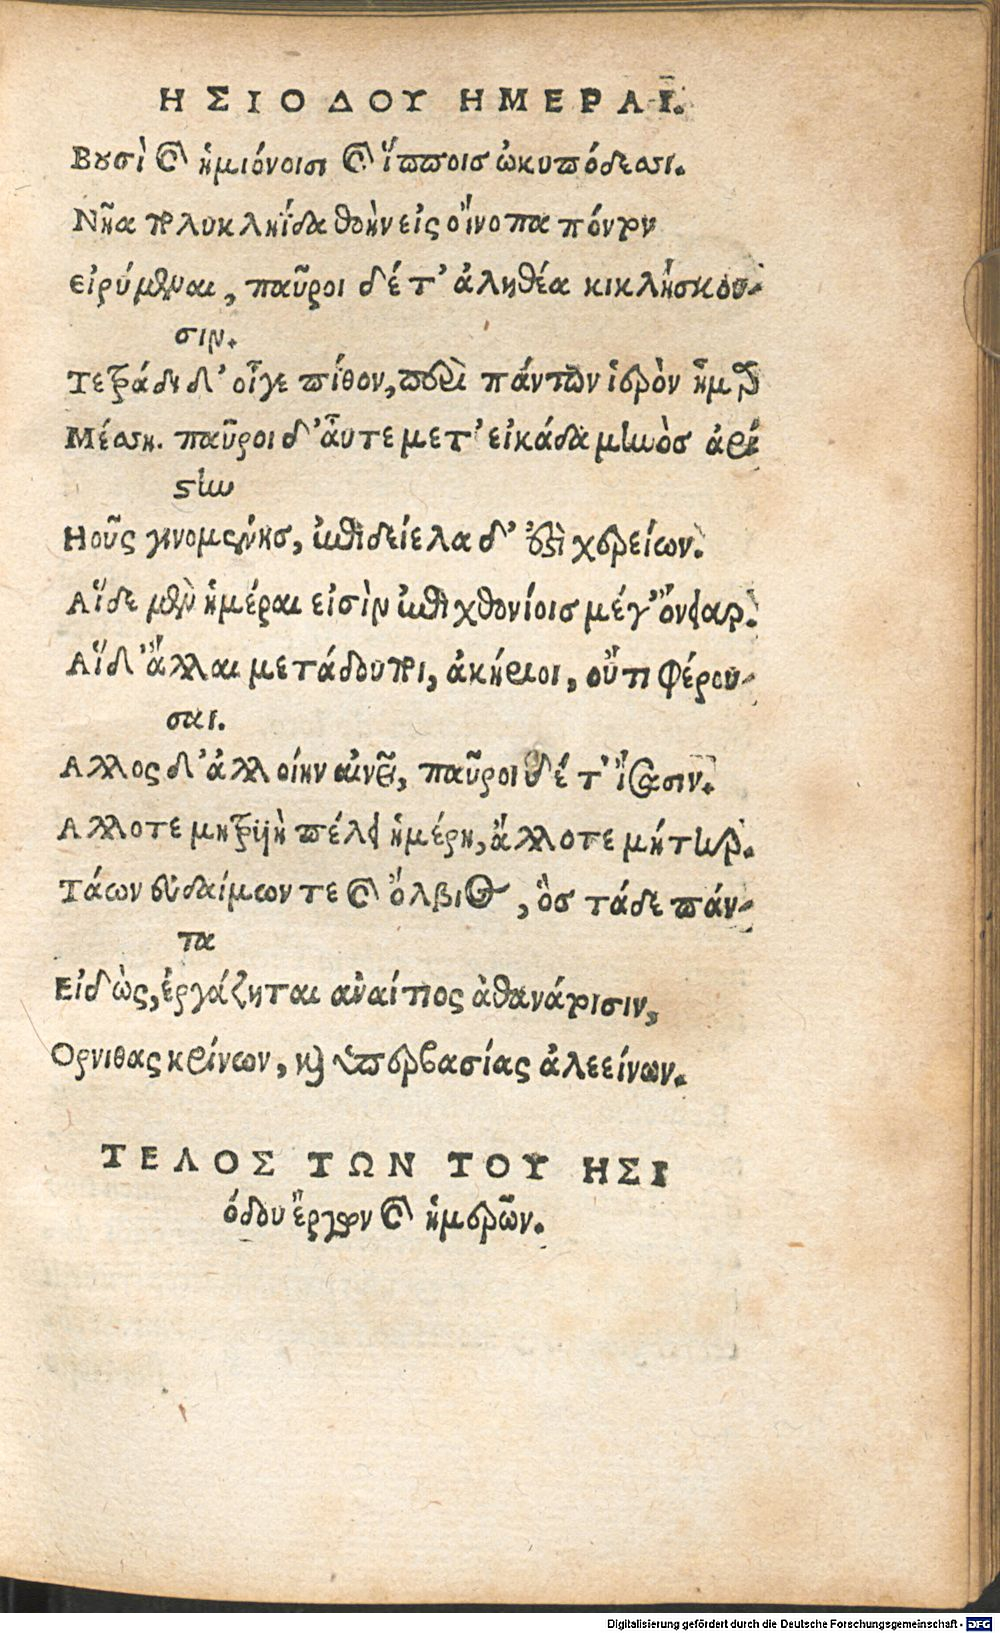 ΗΣΙΟΔΟΥ ΗΜΕΡΑΙ.
Βουσὶ καὶ ἡμιόνοισι καὶ ἵπποισ ὠκυπόδεσσι.
Νῆα πολυκληΐδα θοὴν εἰς οἴνοπα πόντον
Εἰρύμεναι, παῦροι δέ τ' ἀληθέα κικλήσκου-
σιν.
Τετράδι δ' οἶγε πίθον, περὶ πάντων ἱερὸν ἦμαρ
Μέσση. παῦροι δ' αὖτε μετ' εἰκάδα μηνὸσ ἀρί
στην
Ηοῦς γινομένησ, ἐπὶ δείελα δ' ἐστὶ χερείων.
Αἵδε μὲν ἡμέραι εἰσὶν ἐπὶ χθονίοισ μέγ' ὄνειαρ.
Αἵδ' ἄλλαι μετάδουποι, ἀκήριοι, οὔτι φέρου-
σαι.
Αλλος δ' ἀλλοίην αἰνεῖ, παῦροι δέ τ' ἴσασιν.
Αλλοτε μητρυιὴ πέλει ἡμέρη, ἄλλοτε μήτηρ.
Τάων εὐδαίμων τε καὶ ὄλβιος, ὃσ τάδε πάν-
τα
Εἰδὼς, ἐργάζηται ἀναίτιος ἀθανάτοισιν,
Ορνιθας κρίνων, καὶ ὑπερβασίας ἀλεείνων.
ΤΕΛΟΣ ΤΩΝ ΤΟΥ ΗΣΙ
όδου ἔργων καὶ ἡμερῶν.
Digitalisierung gefördert durch die Deutsche Forschungsgemeinschaft - DFG